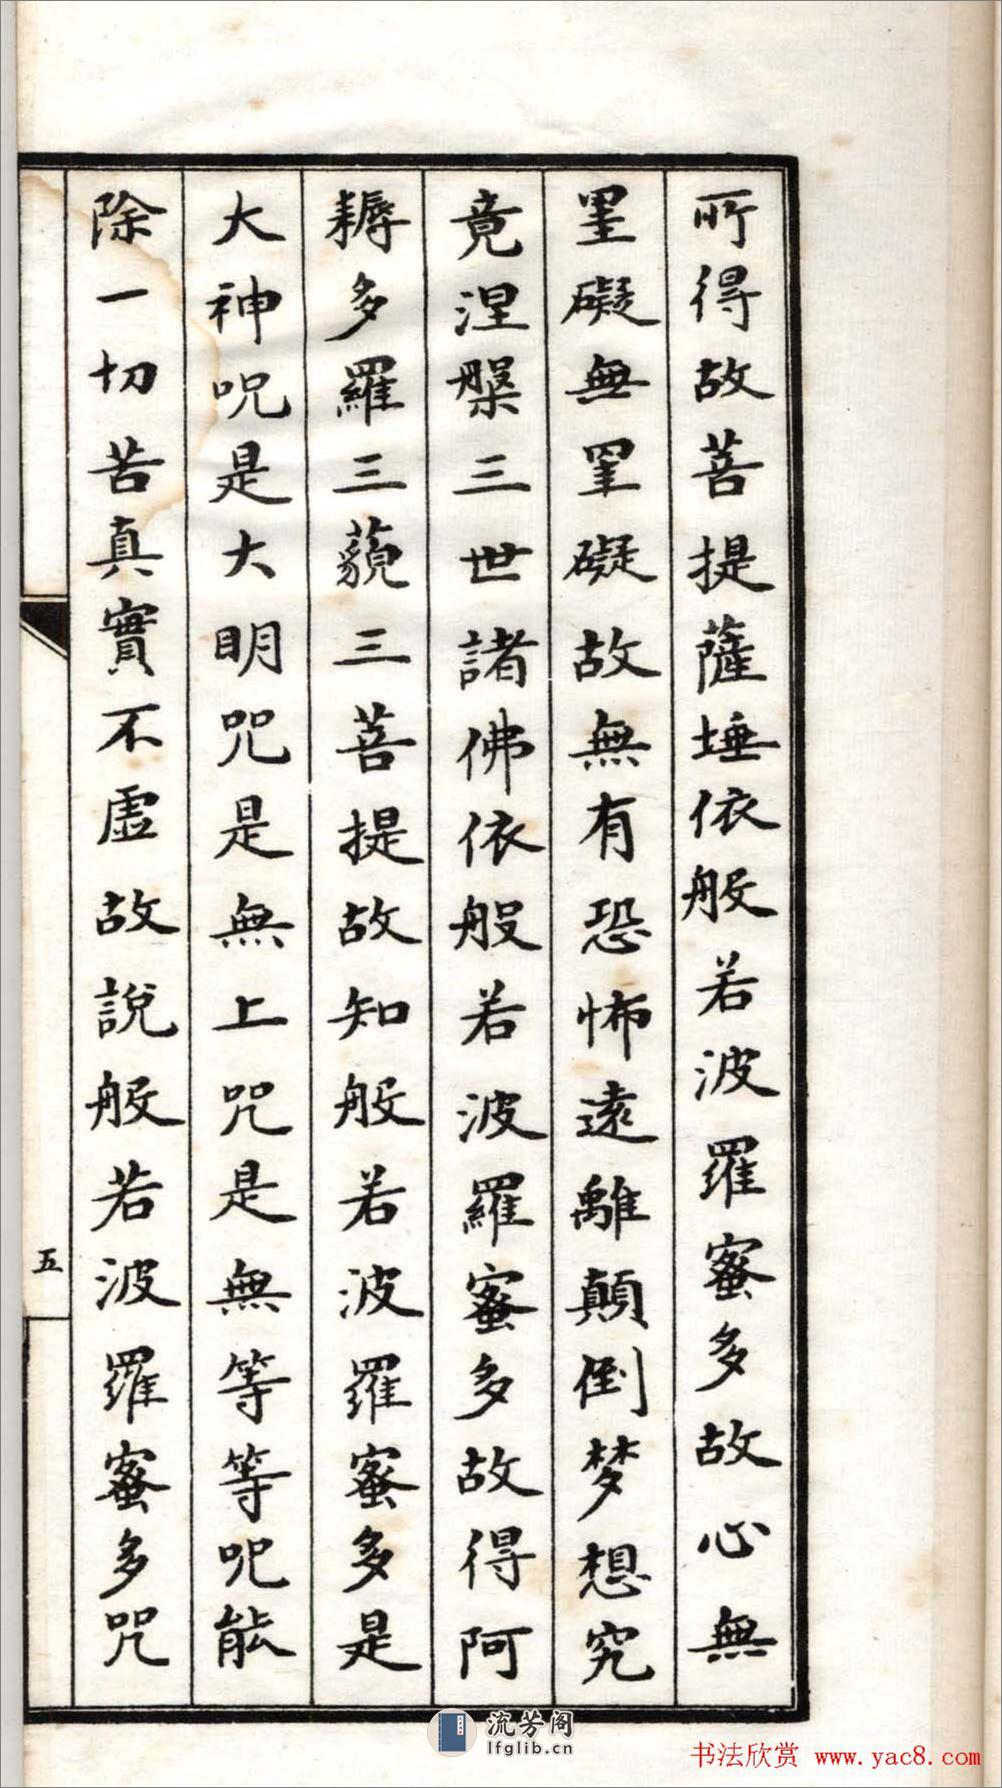 所得故菩提薩埵依般若波羅蜜多故心無
罣礙無罣礙故無有恐怖遠離顛倒梦想究
竟涅槃三世諸佛依般若波羅蜜多故得阿
耨多羅三藐三菩提故知般若波羅蜜多是
大神呪是大明咒是無上咒是無等等呪能
除一切苦真實不虛故說般若波羅蜜多咒
五
流芳阁
lfglib.cn
书法欣赏 www.yac8.com